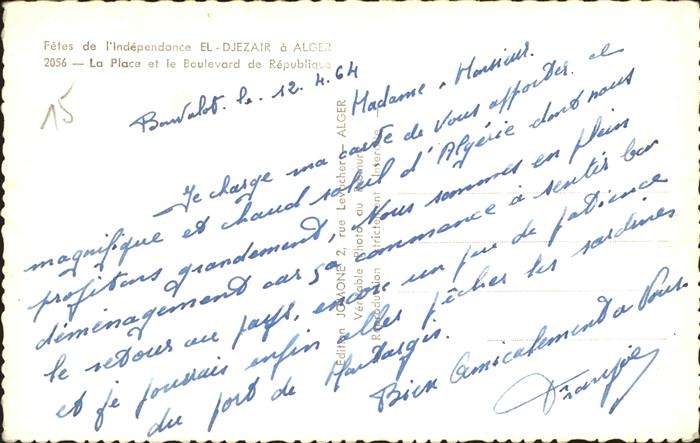 Fêtes de l'Indépendance EL-DJEZAIR à ALGER
2056 — La Place et le Boulevard de République
15
le 12.4.64
Madame, Monsieur.
Je charge ma carte de vous apporter ce
magnifique et chaud soleil d'Algérie dont nous
profitons grandement, Nous sommes en plein
déménagement car ça commence à sentir bon
le retour au pays, encore un peu de patience
et je pourrais enfin aller pêcher les sardines
du port de Montargis.
Bien Amicalement à Vous.
Edition JOMONE 2, rue Levacher — ALGER
Véritable Photo au
Reproduction Strictement Interdite